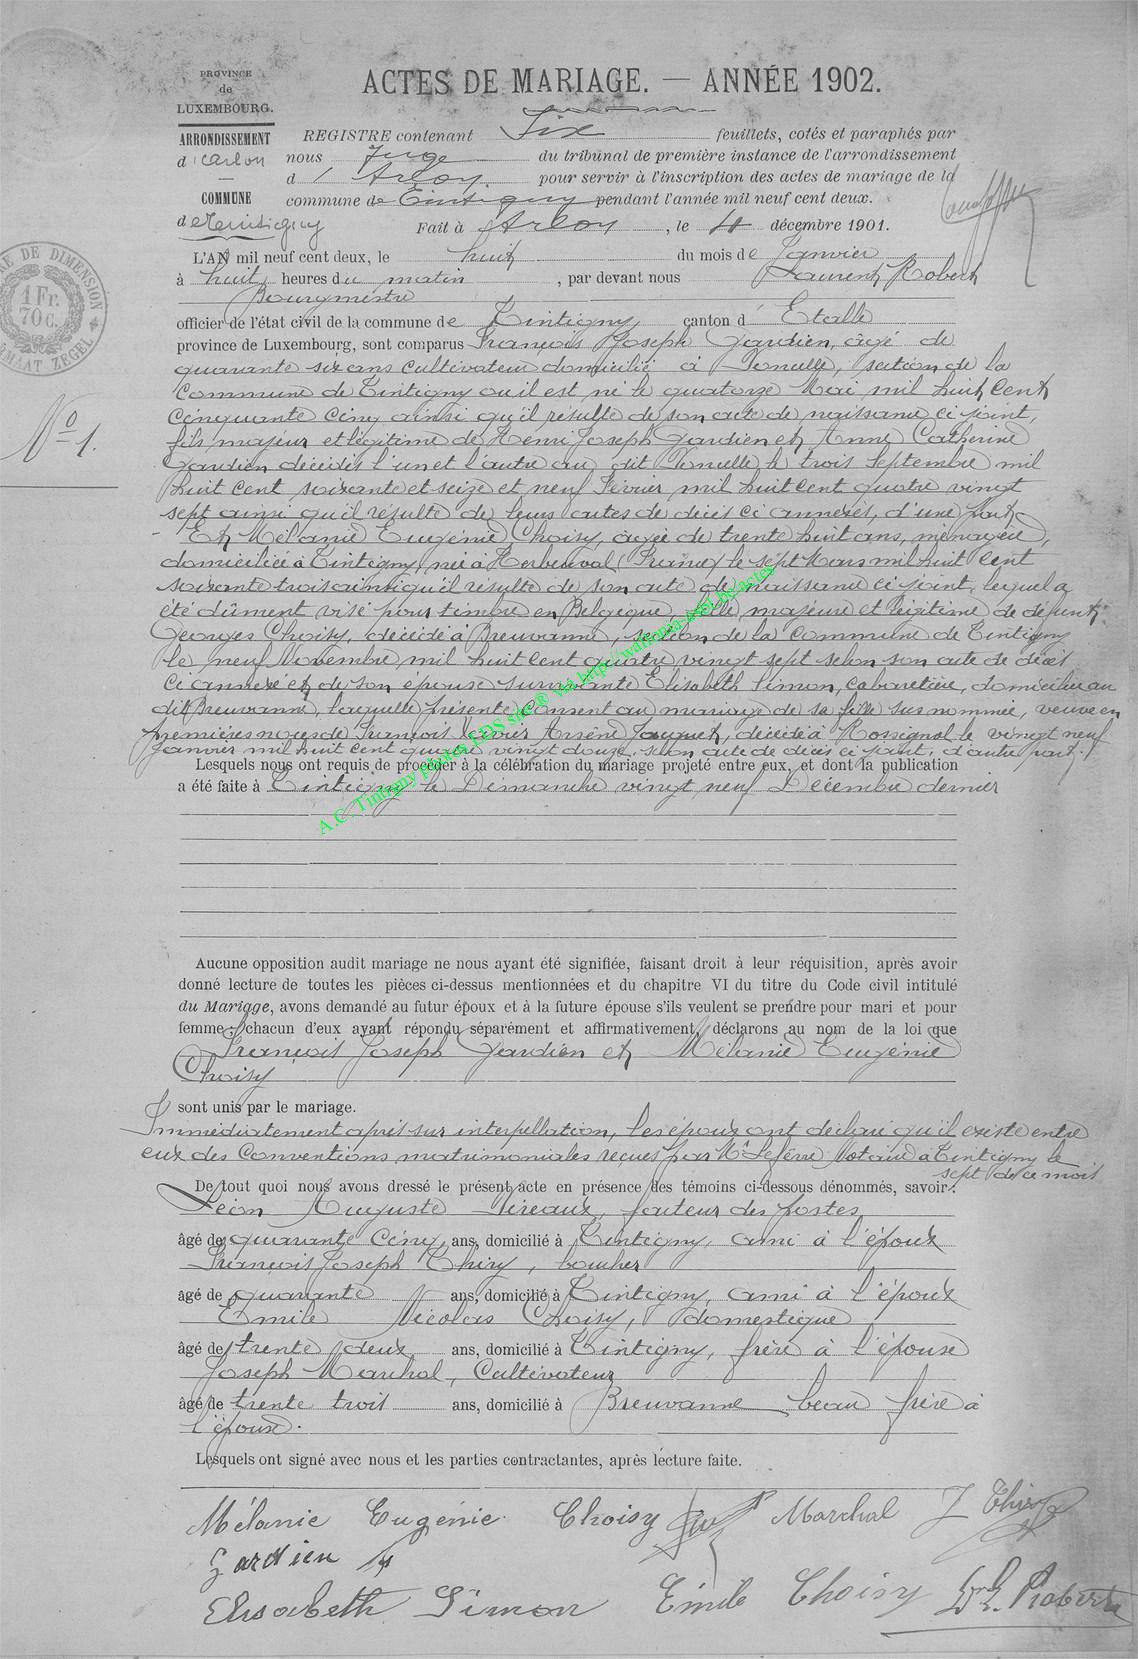 ACTES DE MARIAGE. — ANNÉE 1902.
PROVINCE
de
LUXEMBOURG.
ARRONDISSEMENT
d'Arlon
COMMUNE
de Tintigny
REGISTRE contenant Six feuillets, cotés et paraphés par
nous Juge du tribunal de première instance de l'arrondissement
d'Arlon pour servir à l'inscription des actes de mariage de la
commune de Tintigny pendant l'année mil neuf cent deux.
Fait à Arlon, le 4 décembre 1901.
1 Fr.
70 c.
No 1.
L'AN mil neuf cent deux, le huit du mois de Janvier
à huit heures du matin, par devant nous Laurent Robert
Bourgmestre
officier de l'état civil de la commune de Tintigny canton d'Etalle
province de Luxembourg, sont comparus François Joseph Gardien, âgé de
quarante six ans cultivateur domicilié à Poncelle, section de la
Commune de Tintigny où il est né le quatorze Mai mil huit cent
cinquante cinq ainsi qu'il résulte de son acte de naissance ci joint,
fils majeur et légitime de Henri Joseph Gardien et Anne Catherine
Gardien décédés l'un et l'autre au dit Poncelle le trois Septembre mil
huit cent soixante et seize et neuf Février mil huit cent quatre vingt
sept ainsi qu'il résulte de leurs actes de décès ci annexés, d'une part
Et Mélanie Eugénie Choisy, agée de trente huit ans, ménagère,
domiciliée à Tintigny, née à Herbeuval (France) le sept Mars mil huit cent
soixante trois ainsi qu'il résulte de son acte de naissance ci joint, lequel a
été dûment visé pour timbre en Belgique, fille majeure et légitime de défunt
Georges Choisy, décédé à Breuvanne, section de la Commune de Tintigny
le neuf Novembre mil huit cent quatre vingt sept selon son acte de décès
ci annexé et de son épouse survivante Elisabeth Simon, cabaretière, domiciliée au
dit Breuvanne, laquelle présente consent au mariage de sa fille sus nommée, veuve en
premières noces de François Arsène Jauquet, décédé à Rossignol le vingt neuf
Janvier mil huit cent quatre vingt douze, selon acte de décès ci joint, d'autre part.
Lesquels nous ont requis de procéder à la célébration du mariage projeté entre eux, et dont la publication
a été faite à Tintigny le Dimanche vingt neuf Décembre dernier
A.C. Tintigny photos EDS site ® via http://wallonia-asbl.be/actes
Aucune opposition audit mariage ne nous ayant été signifiée, faisant droit à leur réquisition, après avoir
donné lecture de toutes les pièces ci-dessus mentionnées et du chapitre VI du titre du Code civil intitulé
du Mariage, avons demandé au futur époux et à la future épouse s'ils veulent se prendre pour mari et pour
femme; chacun d'eux ayant répondu séparément et affirmativement, déclarons au nom de la loi que
François Joseph Gardien et Mélanie Eugénie
Choisy
sont unis par le mariage.
Immédiatement après sur interpellation, les époux ont déclaré qu'il existe entre
eux des Conventions matrimoniales reçues par Me Lefèvre Notaire à Tintigny le
sept de ce mois
De tout quoi nous avons dressé le présent acte en présence des témoins ci-dessous dénommés, savoir:
Léon Auguste facteur des postes
âgé de quarante cinq ans, domicilié à Tintigny, ami à l'époux
François Joseph Thiry, boucher
âgé de quarante ans, domicilié à Tintigny, ami à l'époux
Emile Nicolas Choisy, domestique
âgé de trente deux ans, domicilié à Tintigny, frère à l'épouse
Joseph Marchal, Cultivateur
âgé de trente trois ans, domicilié à Breuvanne beau frère à
l'épouse.
Lesquels ont signé avec nous et les parties contractantes, après lecture faite.
Mélanie Eugénie Choisy Marchal J Thiry
Gardien
Elisabeth Simon Emile Choisy L. Robert